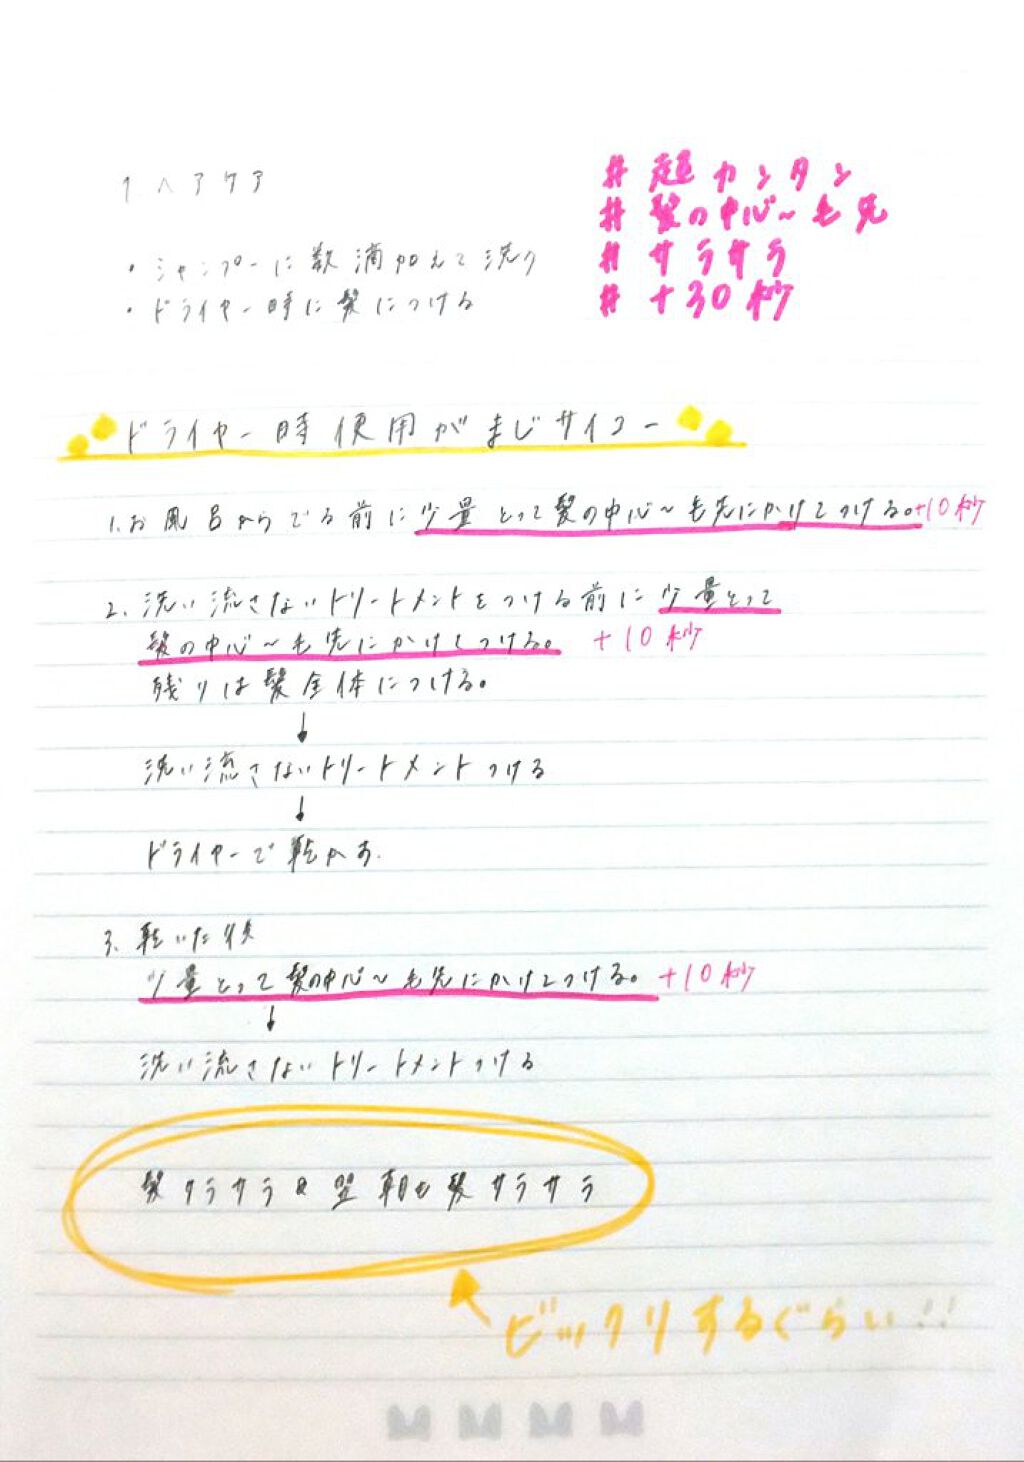 1. ヘアケア
・シャンプーに数滴加えて洗う
・ドライヤー時に髪につける
# 超カンタン
# 髪の中心~毛先
# サラサラ
# +30秒
ドライヤー時使用がまじサイコー
1.お風呂からでる前に少量とって髪の中心~毛先にかけてつける。+10秒
2.洗い流さないトリートメントをつける前に少量とって
髪の中心~毛先にかけてつける。 +10秒
残りは髪全体につける。
↓
洗い流さないトリートメントつける
↓
ドライヤーで乾かす.
3.乾いた後
少量とって髪の中心~毛先にかけてつける。+10秒
↓
洗い流さないトリートメントつける
髪サラサラ& 翌朝も髪サラサラ
ビックリするぐらい!!